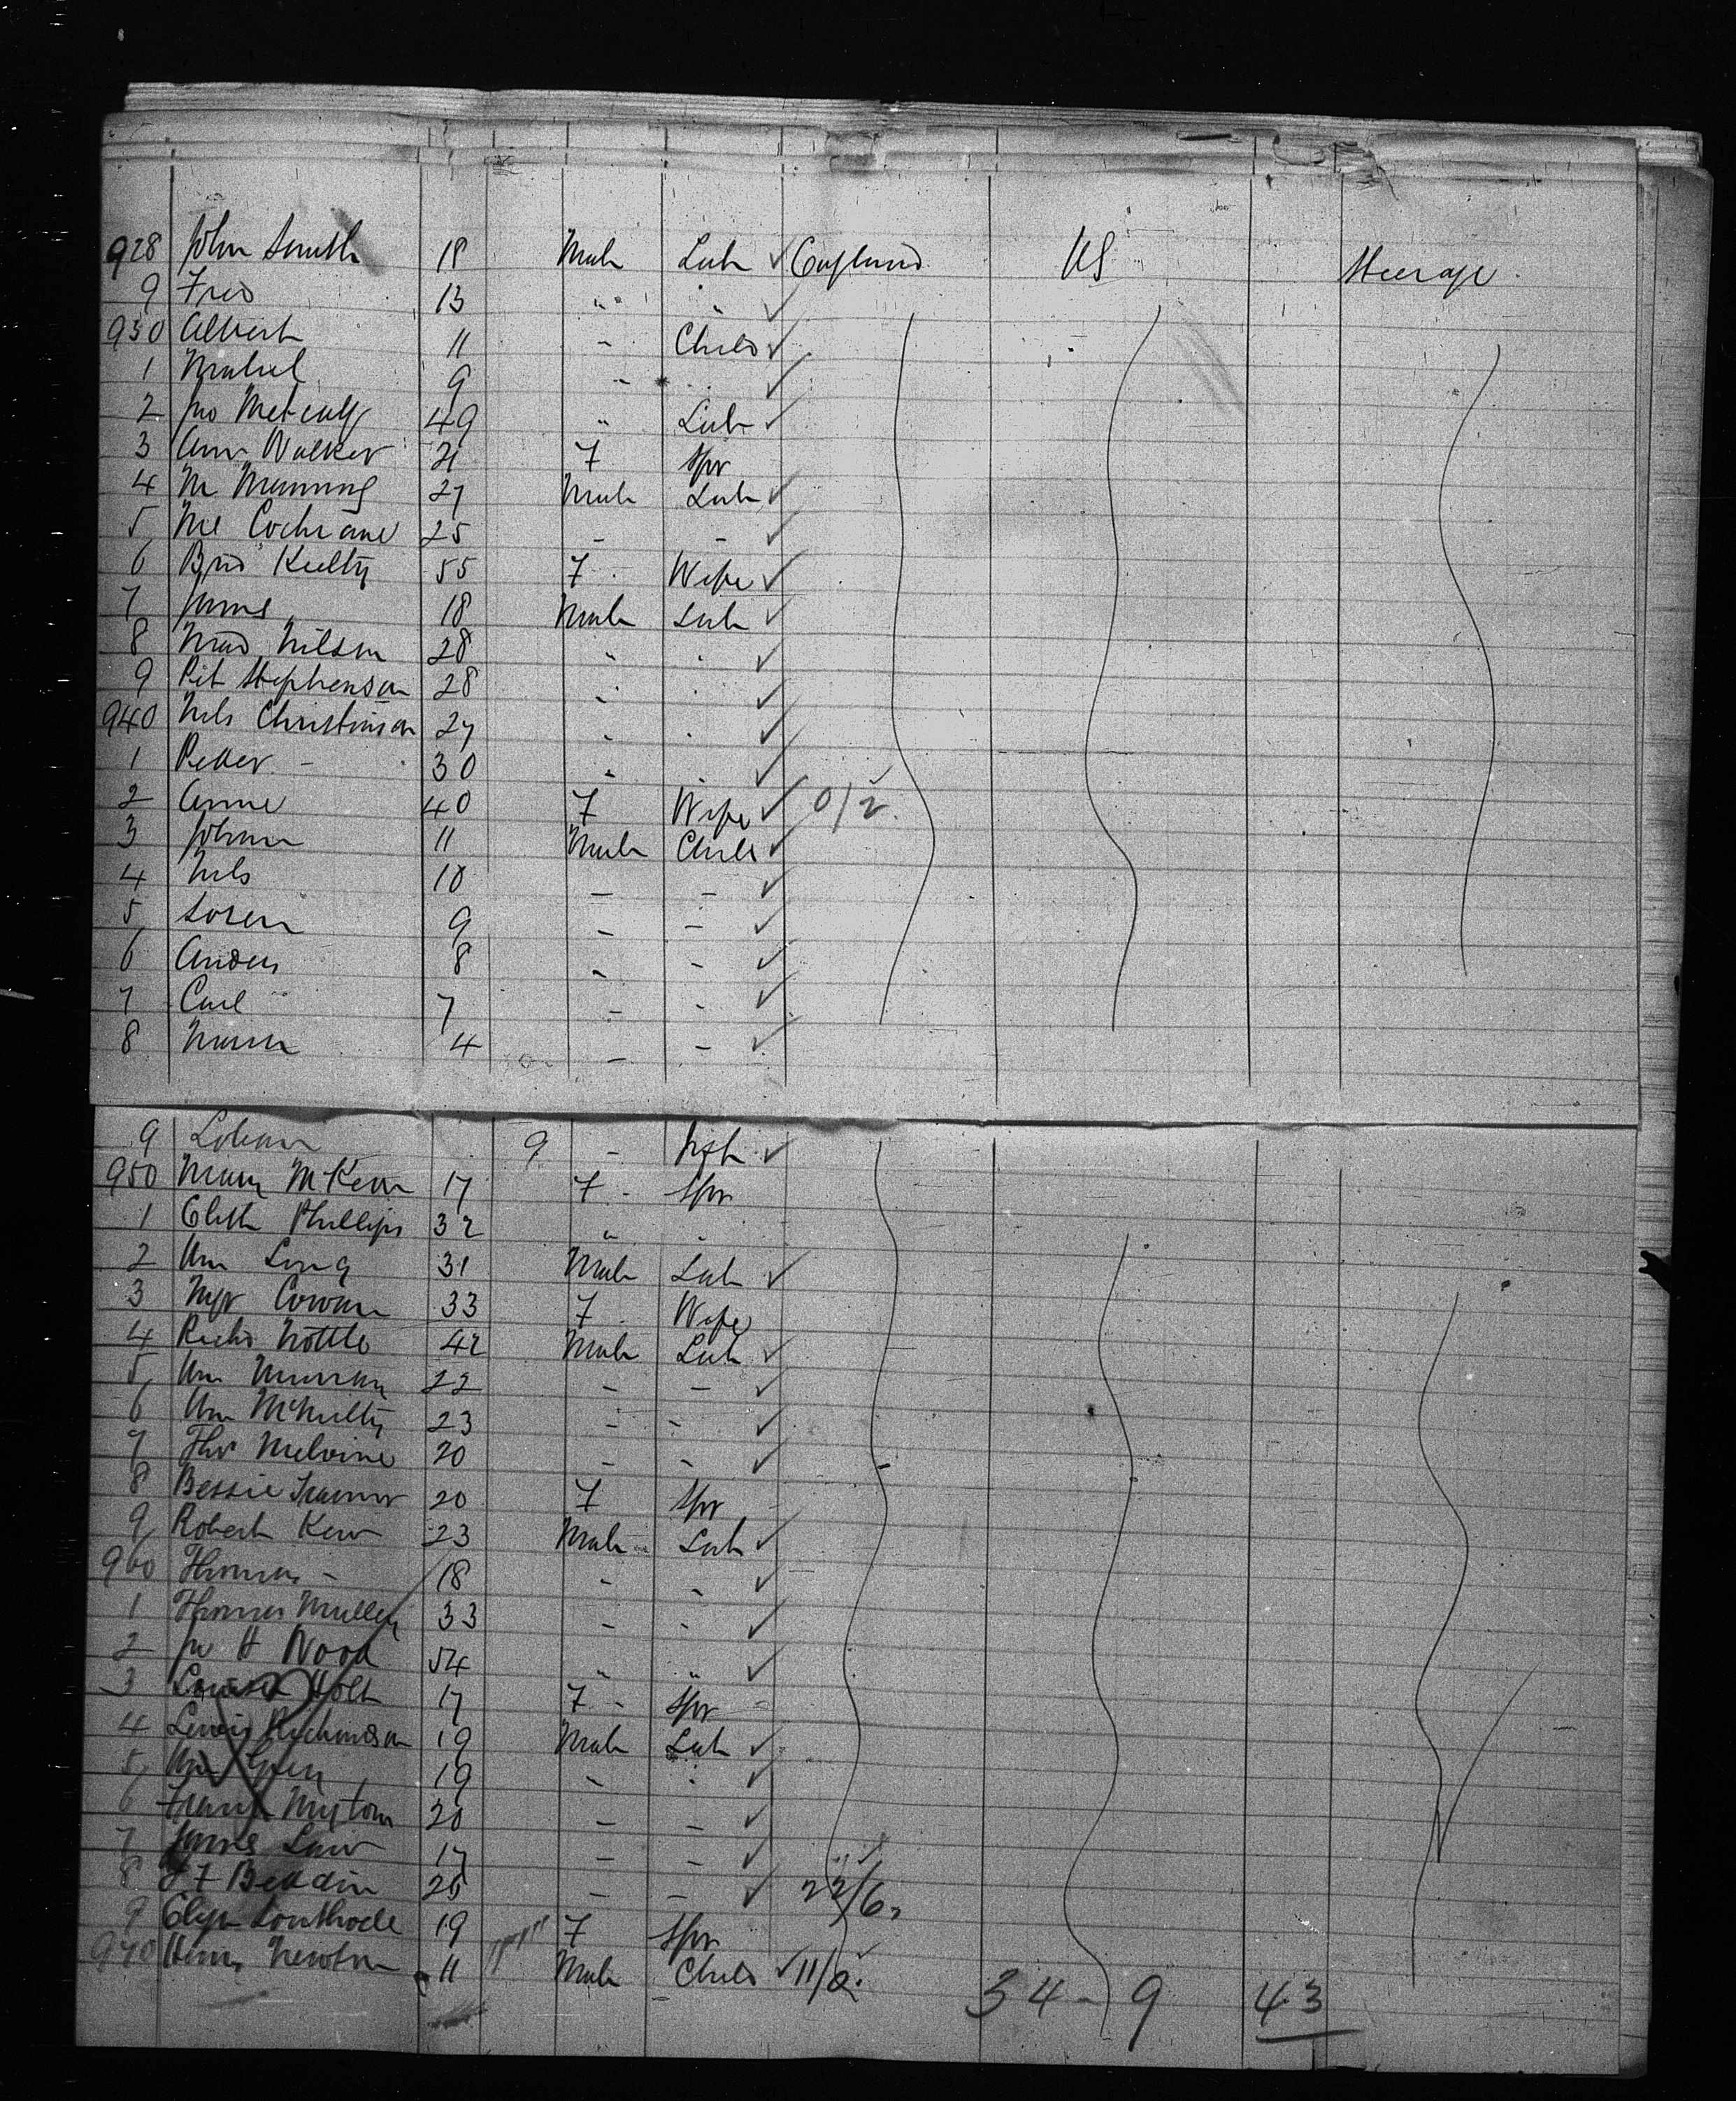 928 John Smith 18 Male Lab ✓ England US Steerage
9 Fred 13 " " ✓
930 Albert 11 - Child ✓
1 9 - ✓
2 Jno Metcalf 49 " Lab ✓
3 Ann Walker 21 F Spr
4 M Manning 27 Male Lab ✓
5 Ml Cochrane 25 - - ✓
6 Brid Keelty 55 F Wife ✓
7 James 18 Male Lab ✓
8 Mad Nilson 28 " " ✓
9 Pet Stephenson 28 " " ✓
940 Nels Christinson 27 " " ✓
1 Petter - 30 " - ✓
2 Anne 40 F Wife ✓ 0/2
3 Johann 11 Male Child ✓
4 Nels 10 - - ✓
5 Soren 9 - - ✓
6 Anders 8 - - ✓
7 Carl 7 - - ✓
8 4 - - ✓
9 9 - Inft ✓
950 Mary McKeon 17 F Spr
1 Elizth Phillips 32 " "
2 Wm Long 31 Male Lab ✓
3 Mgr Cowan 33 F Wife
4 Richd Nottle 42 Male Lab ✓
5 Wm Murray 22 - - ✓
6 Wm McNulty 23 - - ✓
7 Thos Melvine 20 - - ✓
8 Bessie 20 F Spr -
9 Robert Kerr 23 Male Lab ✓
960 Thomas - 18 - - ✓
1 Thomas Mullen 33 - - ✓
2 Jn H Wood 54 " " ✓
3 Louisa Holt 17 F - Spr -
4 Lewis Richardson 19 Male Lab ✓
5 Wm Green 19 - - ✓
6 Frank 20 - - ✓
7 James Law 17 - - ✓
8 J F Beddin 25 - - ✓ 22/6
9 19 F Spr
970 Henry Newton 11 Male Child ✓ 11/2
34 - 9 43